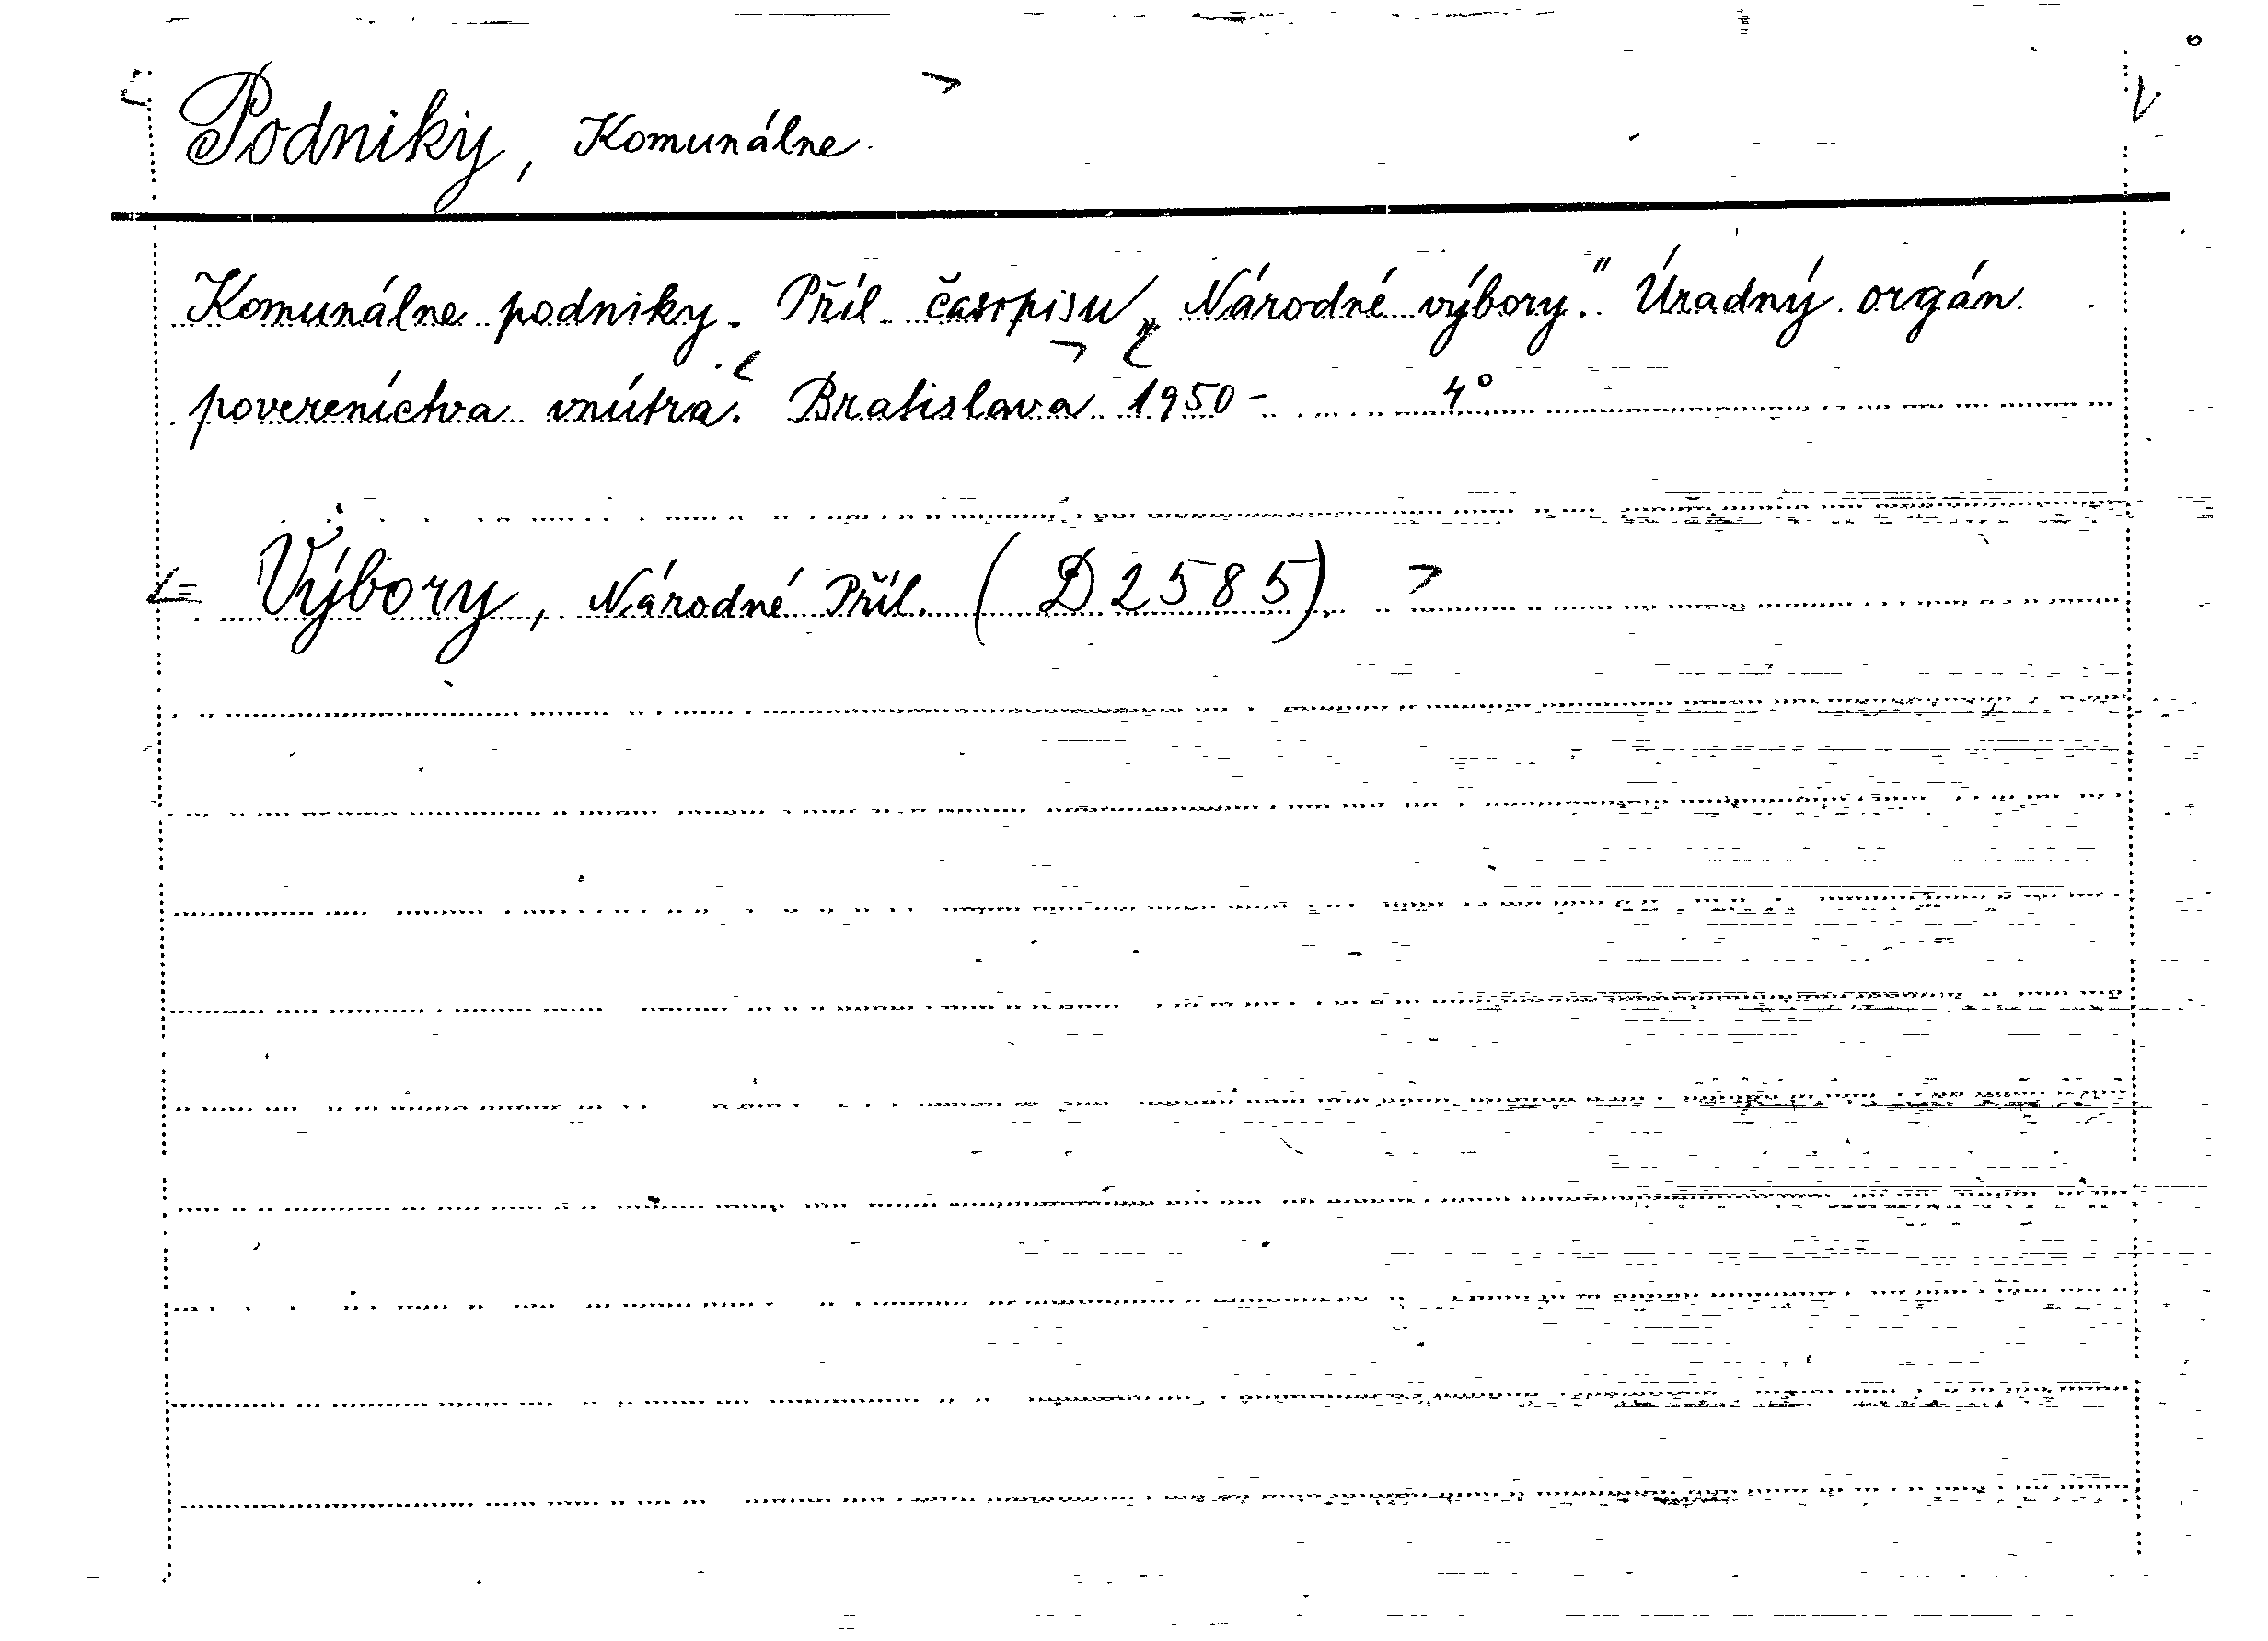 Podniky, Komunálne
Komunálne podniky. Příl. časopisu „Národné výbory." Úradný orgán
povereníctva vnútra. Bratislava 1950- 4°
Výbory, Národné Příl. (D 2585).